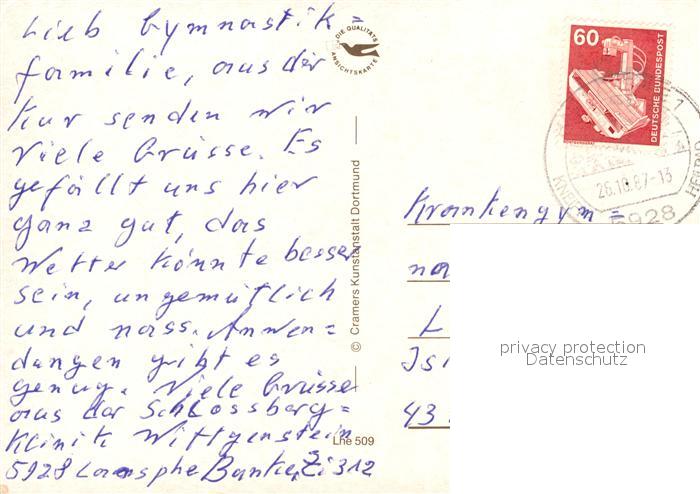 Lieb Gymnastik=
familie, aus der
Kur senden wir
viele Grüsse. Es
gefällt uns hier
ganz gut, das
Wetter könnte besser
sein, ungemütlich
und nass. Anwen=
dungen gibt es
genug. Viele Grüsse
aus der Schlossberg=
Klinik Wittgenstein
5928 Laasphe Zi 312
DIE QUALITÄTS
ANSICHTSKARTE
© Cramers Kunstanstalt Dortmund
Lhe 509
60
DEUTSCHE BUNDESPOST
26.10.87-13
5928
Krankengym=
na
L
43
privacy protection
Datenschutz